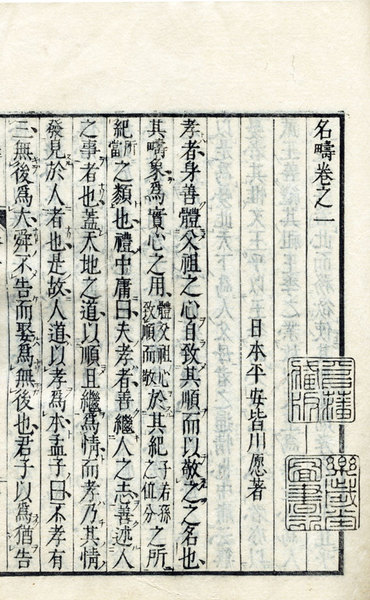 名疇卷之一
日本平安皆川愿著
孝者身善體父祖之心自致其順而以敬之之名也
其疇象爲實心之用體父祖心致順而敬於其紀子若孫之位分之所
紀所當之類也禮中庸曰夫孝者善繼人之志善述人
之事者也蓋天地之道以順且繼爲情而孝乃其情
發見於人者也是故人道以孝爲本孟子曰不孝有
三無後爲大舜不告而娶爲無後也君子以爲猶告